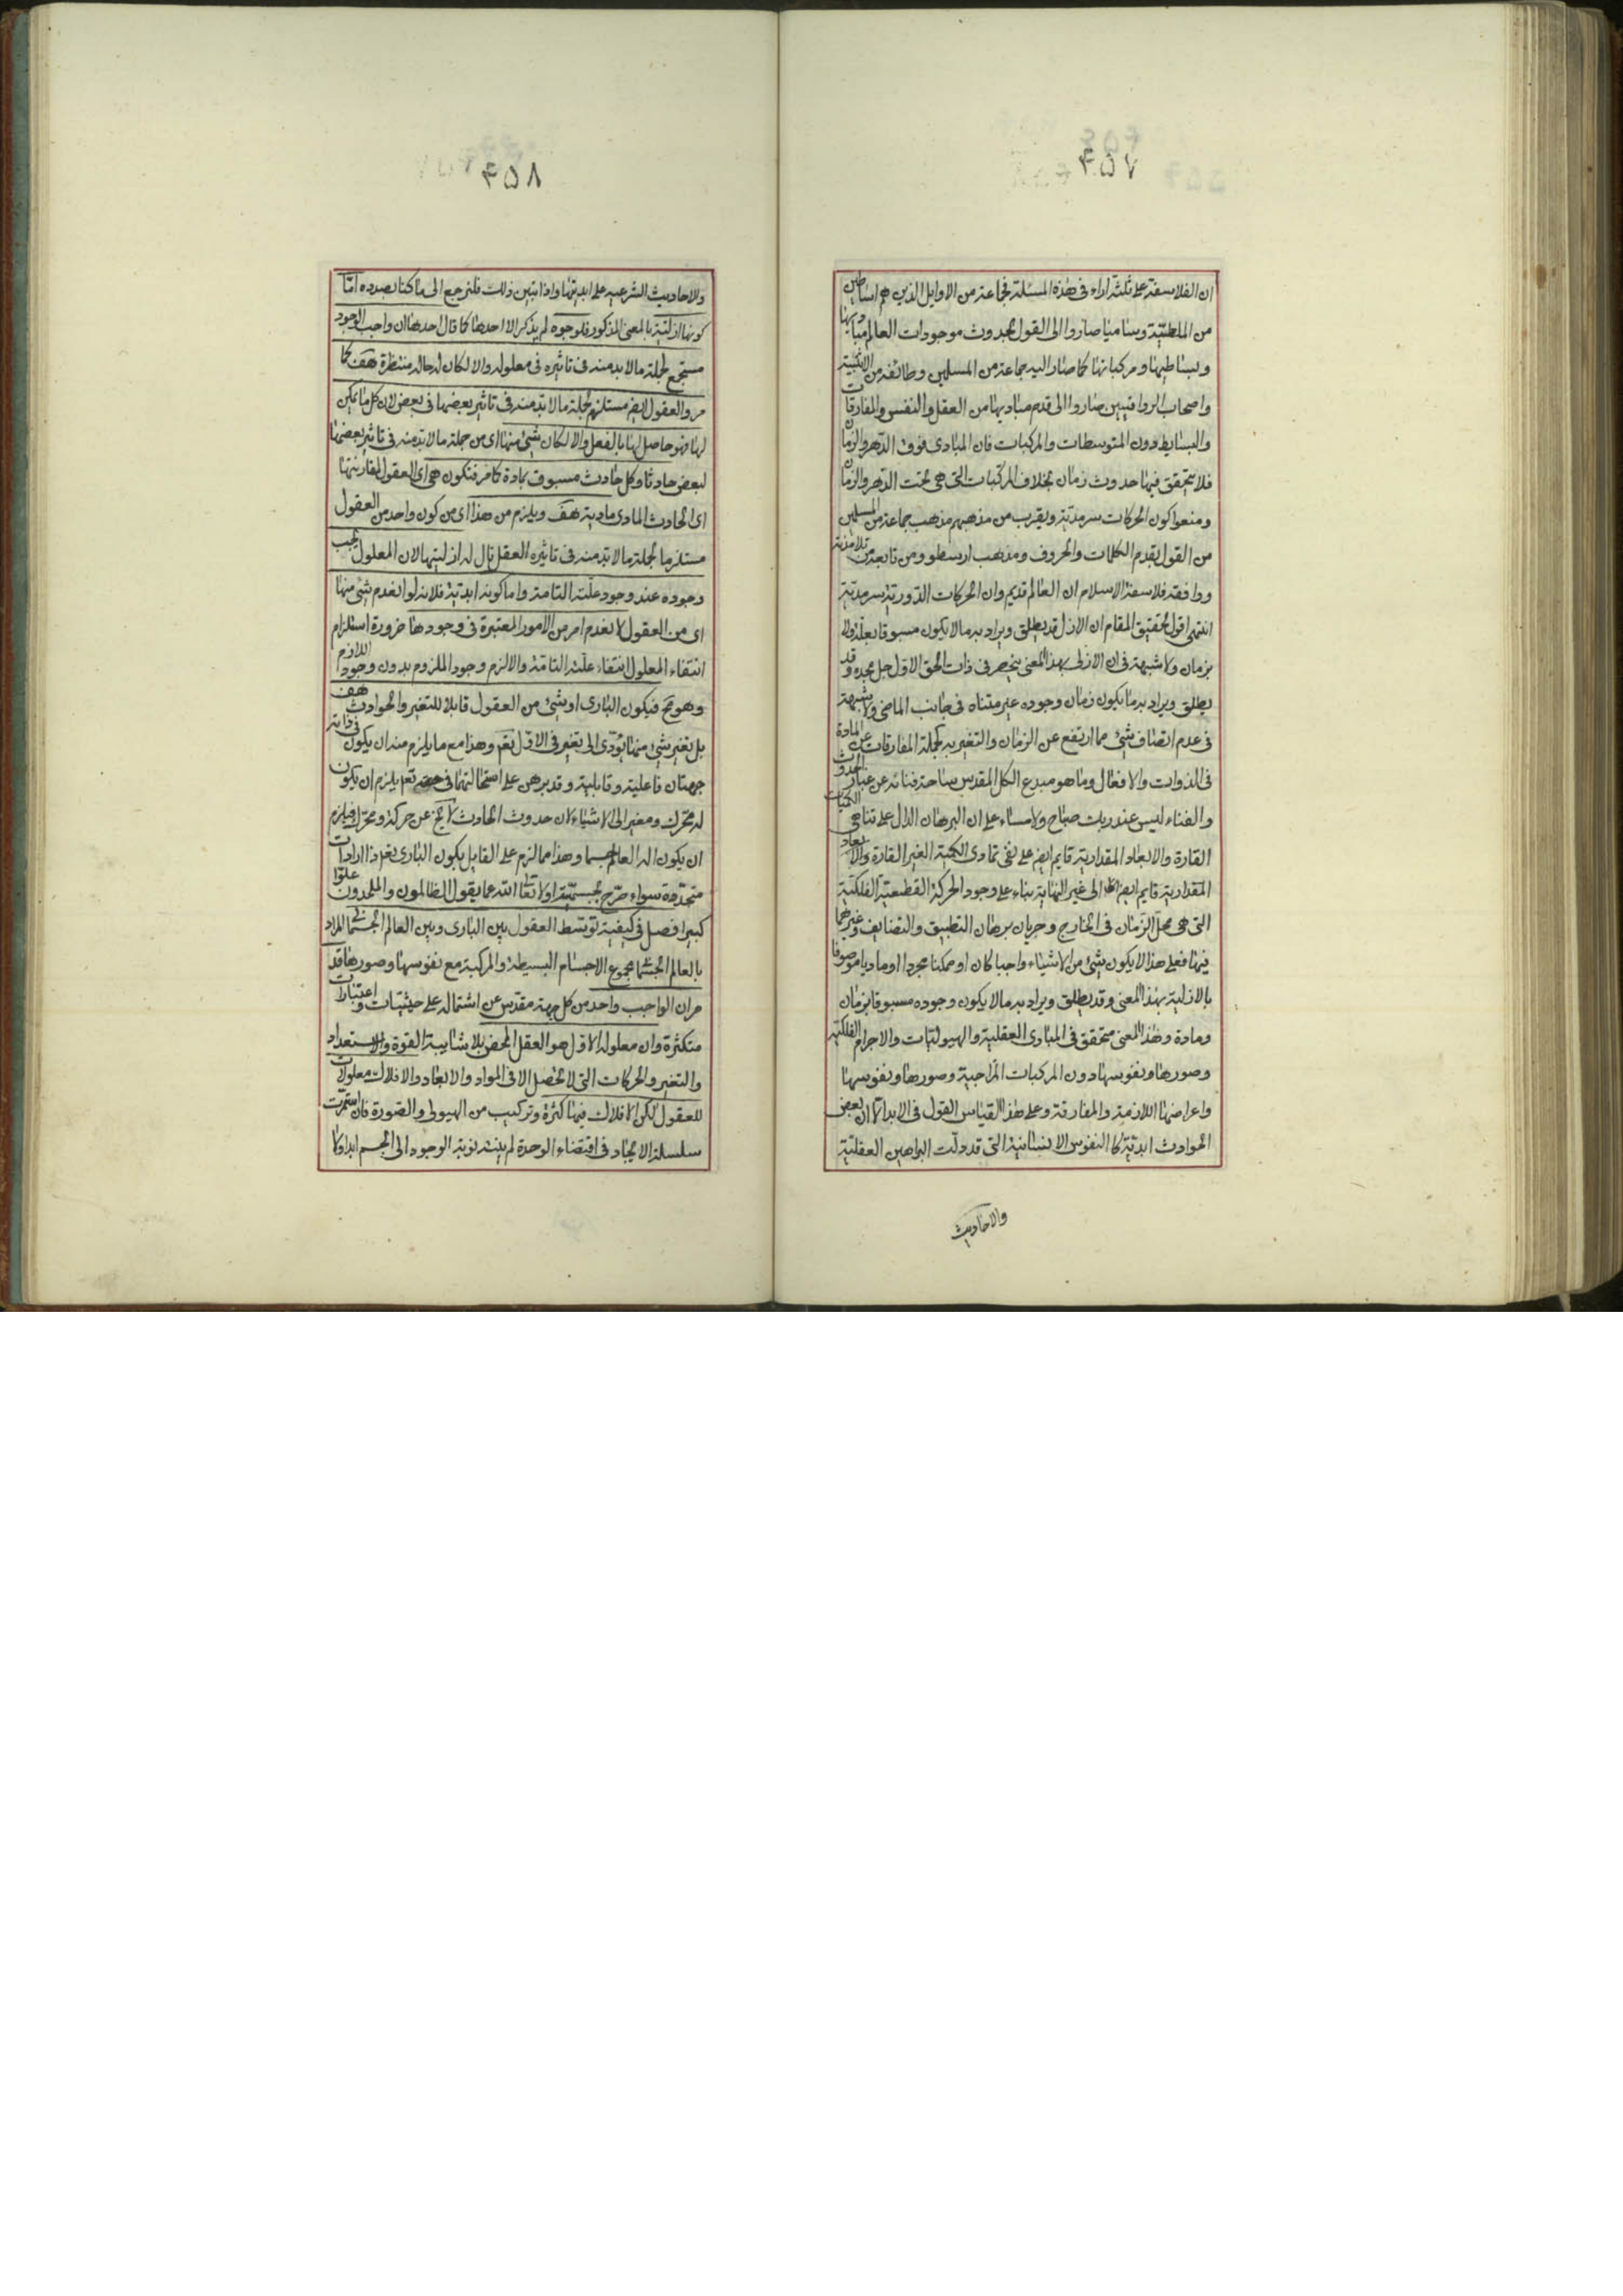 ۴۵۷
ان الفلاسفة على ثلثة اراء فى هذه المسئلة فجماعة من الاوايل الذين هم اساطين
من الملطيّة وساميا صاروا الى القول بحدوث موجودات العالم مباديها
وبسايطها ومركباتها كما صار اليه جماعة من المسلمين وطائفة من
واصحاب الرواقيين صاروا الى قدم مباديها من العقل والنفس والمفارقات
والبسايط دون المتوسطات والمركبات فان المبادى فوق الدهر والزمان
فلا يتحقق فيها حدوث زمان بخلاف المركبات التى هى تحت الدهر والزمان
ومنعوا كون الحركات سرمدية ويقرب من مذهبهم مذهب جماعة من المسلمين
من القول بقدم الكلمات والحروف ومذهب ارسطو ومن تابعه من تلامذته
ووافقه فلاسفة الاسلام ان العالم قديم وان الحركات الدورية سرمدية
انتهى اقول تحقيق المقام ان الازل قد يطلق ويراد به ما لا يكون مسبوقا بعلة ولا
بزمان ولا شبهة فى ان الازلى بهذا المعنى ينحصر فى ذات الحق الاول جل مجده وقد
يطلق ويراد به ما يكون زمان وجوده غير متناه فى جانب الماضى ولا شبهة
فى عدم اتصاف شئ مما ارتفع عن الزمان والتغير به كجملة المفارقات عن المادة
فى الذوات والافعال وما هو مبدع الكل المقدس ساحة فنائه عن غبار الحدوث
والفناء ليس عند ربك صباح ولا مساء على ان البرهان الدال على تناهى الكميات
القارة والابعاد المقدارية قايم ايضا على نفى تمادى الكمية الغير القارة والابعاد
المقدارية قايم ايضا الى غير النهاية بناء على وجود الحركة القطعية الفلكية
التى هى محل الزمان فى الخارج وجريان برهان التطبيق والتضايف وغيرهما
فيها فعلى هذا لا يكون شئ من الاشياء واجبا كان او ممكنا مجردا او ماديا موصوفا
بالازلية بهذا المعنى وقد يطلق ويراد به ما لا يكون وجوده مسبوقا بزمان
ومادة وهذا المعنى متحقق فى المبادى العقلية والهيوليات والاجرام الفلكية
وصورها ونفوسها دون المركبات المزاجية وصورها ونفوسها
واعراضها اللازمة والمفارقة وعلى هذا القياس القول فى الابد الا ان بعض
الحوادث ابدية كا النفوس الانسانية التى قد دلت البراهين العقلية
والاحاديث
۴۵۸
والاحاديث الشرعيه على ابديتها واذا تبين ذلك فلنرجع الى ما كنا بصدده امّا
كونها ازلية بالمعنى المذكور فلوجوه لم يذكر الا احدها كما قال احدها ان واجب الوجود
مستجمع لجملة ما لا بد منه فى تاثيره فى معلوله والا لكان له حالة منتظرة هف كما
مر والعقول ايضا مستلزمة لجملة ما لا بد منه فى تاثير بعضها فى بعض لان كل ما يمكن
لها فهو حاصل لها بالفعل والا لكان شئ منها اى من جملة ما لا بد منه فى تاثير بعضها
لبعض حادثا وكل حادث مسبوق بمادة كما مر فتكون هى اى العقول لمقارنتها
اى الحادث المادى مادية هف ويلزم من هذا اى من كون واحد من العقول
مستلزما لجملة ما لا بد منه فى تاثيره العقل تال له ازليتها لان المعلول يجب
وجوده عند وجود علته التامة واما كونه ابدية فلانه لو انعدم شئ منها
اى من العقول لانعدم امر من الامور المعتبرة فى وجودها ضرورة استلزام
انتفاء المعلول انتفاء علته التامة والا لزم وجود الملزوم بدون وجود اللازم
وهو مح فيكون البارى او شئ من العقول قابلا للتغير والحوادث هف
بل تغير شئ منها يؤدّى الى تغير فى الاول تعم وهذا مع ما يلزم منه ان يكون فى ذاته
جهتان فاعلية وقابلية وقد برهن على استحالتها فى حقه تعم يلزم ان يكون
له محرك ومغير الى الاشياء لان حدوث الحادث لا يخ عن حركة ومحرك فيلزم
ان يكون اله العالم جسما وهذا مما لزم على القايل بكون البارى تعم ذا ارادات
متجددة سواء صرّح بجسميته او لا تعالى الله عما يقول الظالمون والملحدون علوّا
كبيرا فصل فى كيفية توسط العقول بين البارى وبين العالم الجسمانى المراد
بالعالم الجسمانى مجموع الاجسام البسيطة والمركبة مع نفوسها وصورها قد
مر ان الواجب واحد من كل جهة مقدس عن اشتماله على حيثيات واعتبارات
متكثرة وان معلوله الاول هو العقل المحض بلا شايبة القوة والاستعداد
والتغير والحركات التى لا تحصل الا فى المواد والابعاد والافلاك معلولات
للعقول لكن الافلاك فيها كثرة وتركيب من الهيولى والصورة فان استمرت
سلسلة الايجاد فى اقتضاء الوحدة لم ينته نوبة الوجود الى الجسم ابدا ولا